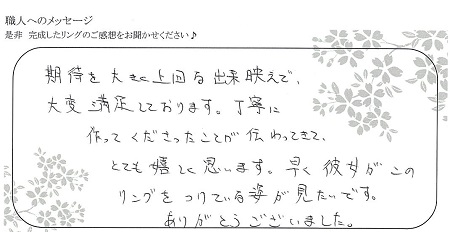 職人へのメッセージ
是非 完成したリングのご感想をお聞かせください♪
期待を大きく上回る出来映えで、
大変満足しております。丁寧に
作ってくださったことが伝わってきて、
とても嬉しく思います。早く彼女がこの
リングをつけている姿が見たいです。
ありがとうございました。